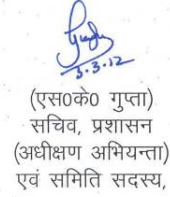 3.3.12
(एस0के0 गुप्ता)
सचिव, प्रशासन
(अधीक्षण अभियन्ता)
एवं समिति सदस्य,